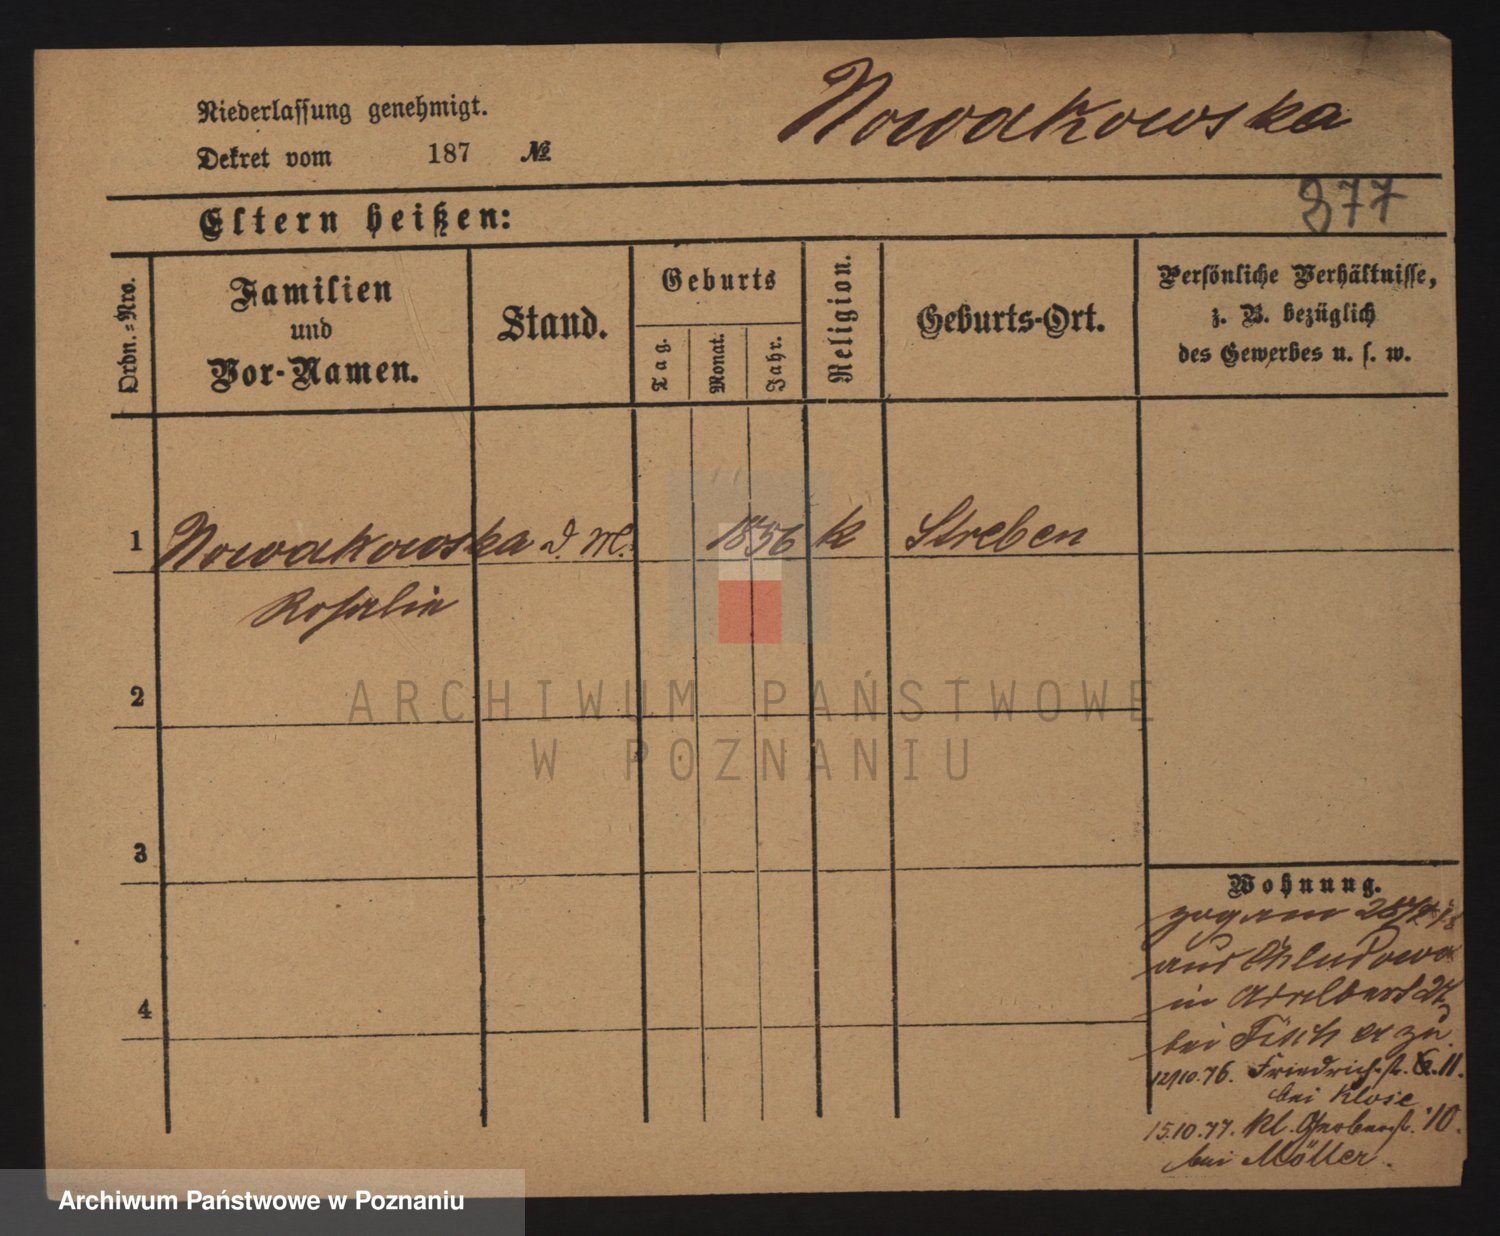 Niederlassung genehmigt.
Nowakowska
Dekret vom 187 №
377
Eltern heißen:
Ordn.-Nro.
Familien
und
Vor-Namen.
Stand.
Geburts
Tag.
Monat.
Jahr.
Religion.
Geburts-Ort.
Persönliche Verhältnisse,
z. B. bezüglich
des Gewerbes u. s. w.
1 Nowakowska d. M. 1856 k Streben
Rosalie
2
3
4
Wohnung.
zog am
aus Chludowo
in Adalbert 27
bei Fischer zu
12/10.76. Friedrich-st. 11.
bei Klose
15.10.77. Kl. Gerberst. 10.
bei Möller.
ARCHIWUM PAŃSTWOWE
W POZNANIU
Archiwum Państwowe w Poznaniu